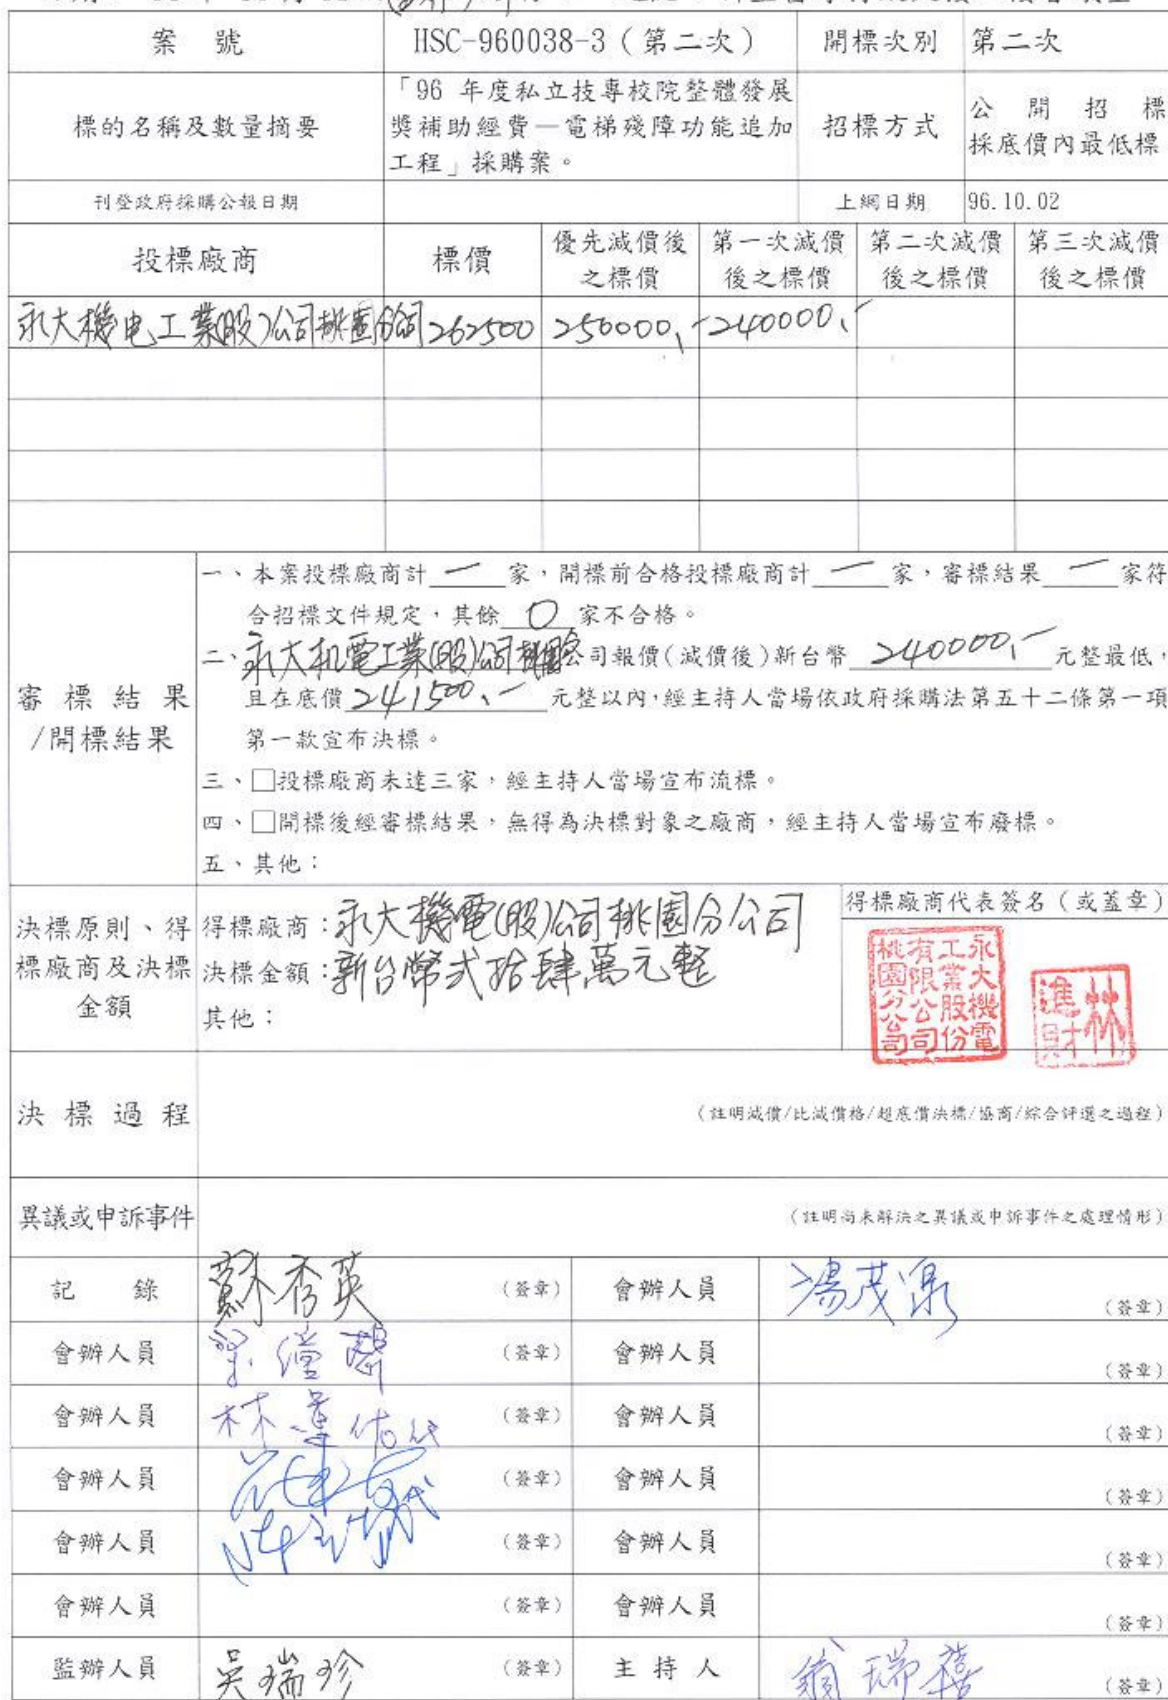 案 號 HSC-960038-3（第二次） 開標次別 第二次
標的名稱及數量摘要
「96 年度私立技專校院整體發展
獎補助經費—電梯殘障功能追加
工程」採購案。
招標方式
公開招標
採底價內最低標
刊登政府採購公報日期 上網日期 96.10.02
投標廠商 標價 優先減價後之標價 第一次減價後之標價 第二次減價後之標價 第三次減價後之標價
永大機电工業(股)公司桃園分公司 262500 250000,- 240000,-
審標結果
/開標結果
一、本案投標廠商計 一 家，開標前合格投標廠商計 一 家，審標結果 一 家符
合招標文件規定，其餘 0 家不合格。
二、永大机電工業(股)公司桃園公司報價(減價後)新台幣 240000,- 元整最低，
且在底價 241500、- 元整以內，經主持人當場依政府採購法第五十二條第一項
第一款宣布決標。
三、□投標廠商未達三家，經主持人當場宣布流標。
四、□開標後經審標結果，無得為決標對象之廠商，經主持人當場宣布廢標。
五、其他：
決標原則、得
標廠商及決標
金額
得標廠商：永大機電(股)公司桃園分公司
決標金額：新台幣弍拾肆萬元整
其他：
得標廠商代表簽名（或蓋章）
永大機電
工業股份
有限公司
桃園分公司
林
進財
決標過程
（註明減價/比減價格/超底價決標/協商/綜合評選之過程）
異議或申訴事件
（註明尚未解決之異議或申訴事件之處理情形）
記 錄 蘇秀英 （簽章） 會辦人員 湯茂泉 （簽章）
會辦人員 （簽章） 會辦人員 （簽章）
會辦人員 （簽章） 會辦人員 （簽章）
會辦人員 （簽章） 會辦人員 （簽章）
會辦人員 （簽章） 會辦人員 （簽章）
會辦人員 （簽章） 會辦人員 （簽章）
監辦人員 吳瑞珍 （簽章） 主持人 翁瑞禧 （簽章）